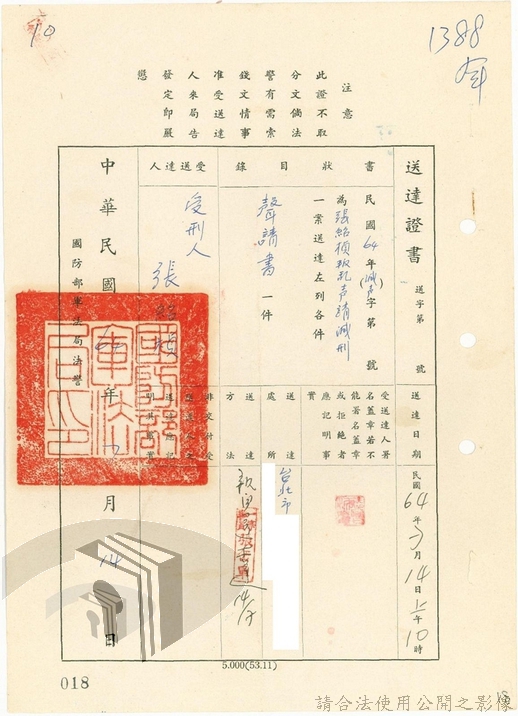 1388
注意
此證不取
分文倘法
警有需索
錢文情事
准受送達
人來局告
發定即嚴
懲
送達證書
送字第 號
送達日期
民國64年 月14日上午10時
書狀目錄
民國64年(減声)字第 號
為張紹楨叛乱声請減刑
一案送達左列各件
聲請書一件
受送達人
受刑人
張紹楨
受送達人署
名蓋章若不
能署名蓋章
或拒絕者
應記明事
實
送達處所
台北市
送達方法
非交付受
中華民國 年 月14日
國防部軍法局法警
5.000(53.11)
018
請合法使用公開之影像